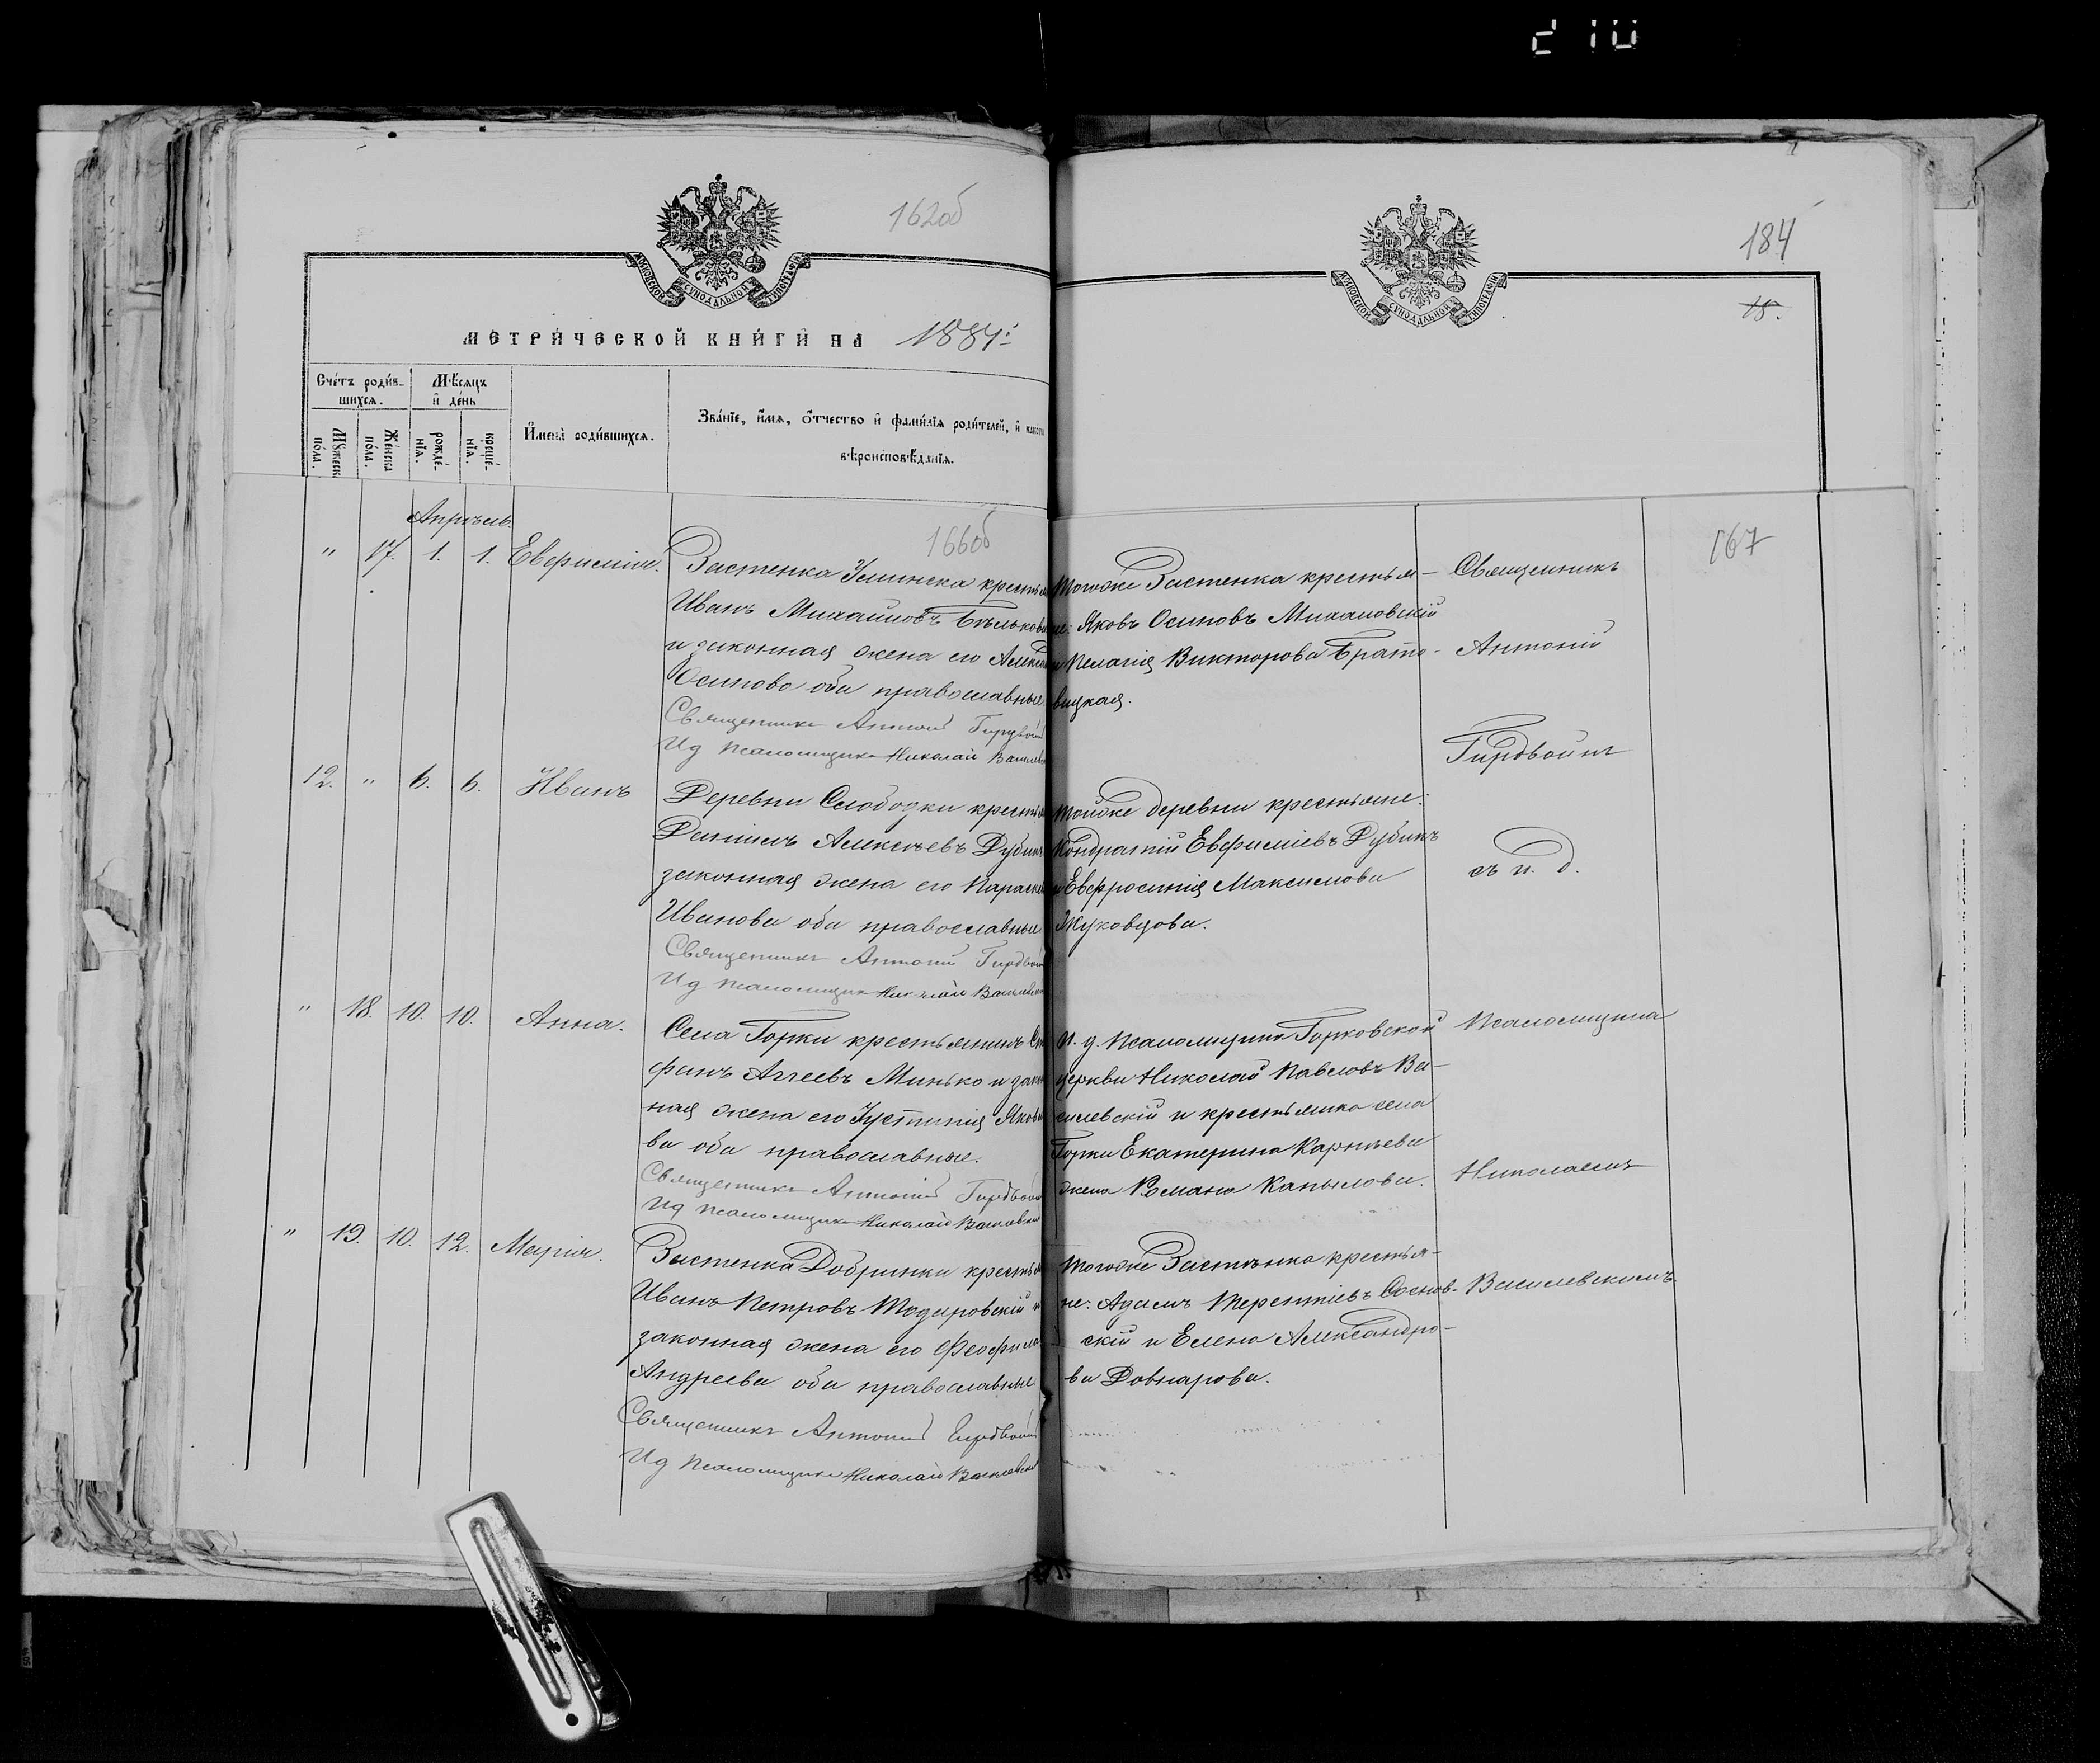 210
162об
184
15.
МОСКОВСКОЙ СѴНОДАЛЬНОЙ ТИПОГРАФІИ
МОСКОВСКОЙ СѴНОДАЛЬНОЙ ТИПОГРАФІИ
МЕТРИ́ЧЕСКОЙ КНИ́ГИ НА 1884 г
Сче́тъ роди́в-
шихся.
Мѣсяцъ
и де́нь
Мꙋжеска
по́ла.
Же́нска
по́ла.
рожде́-
нїя.
креще́-
нїя.
Имена̀ роди́вшихся.
Зва́нїе, и́мя, о́тчество и фами́лїя роди́телей, и како́гѡ
вѣроисповѣ́данїя.
166об
167
Апрѣль.
" 17. 1. 1. Евфимія.
Застенка Уминска крестья
Иванъ Михайловъ Бѣлькови
и законная жена его Алекса
Осипова оба православные.
Священникъ Антоній Гирдвой
Ид псаломщика Николай Васылев
Тогоже Застенка крестья-
не: Яковъ Осиповъ Михаловскій
и Пелагія Викторова Брато-
вицкая.
Священникъ
Антоній
Гирдвоинъ
12. " 6. 6. Иванъ
Деревни Слободки крестья
Даніилъ Алексѣевъ Дубикъ
законная жена его Параске
Иванова оба православные.
Священникъ Антоній Гирдвой
Ид псаломщика Николай Васылевск
Тойже деревни крестьяне:
Кондратій Евфиміевъ Дубикъ
и Евфросинія Максимова
Жуковцова.
съ и. д.
" 18. 10. 10. Анна.
Села Горки крестьянинъ Сте
фанъ Аггеевъ Минько и закон
ная жена его Іустинія Яковле
ва оба православные.
Священникъ Антоній Гирдвой
Ид псаломщика Николай Васылевски
И. д. псаломщика Горковской
церкви Николай Павловъ Ва-
силевскій и крестьянка села
Горки Екатерина Карнѣева
жена Романа Капылова.
Псаломщика
Николаемъ
" 19. 10. 12. Марія.
Застенка Добринки крестья
Иванъ Петровъ Тодаровскій и
законная жена его Феофила
Андреева оба православные
Священникъ Антоній Гирдвой
Ид псаломщика Николай Васылевски
Тогоже Застѣнка крестья-
не: Адамъ Терентіевъ Соснов-
скій и Елена Александро-
ва Довнарова.
Василевскимъ.